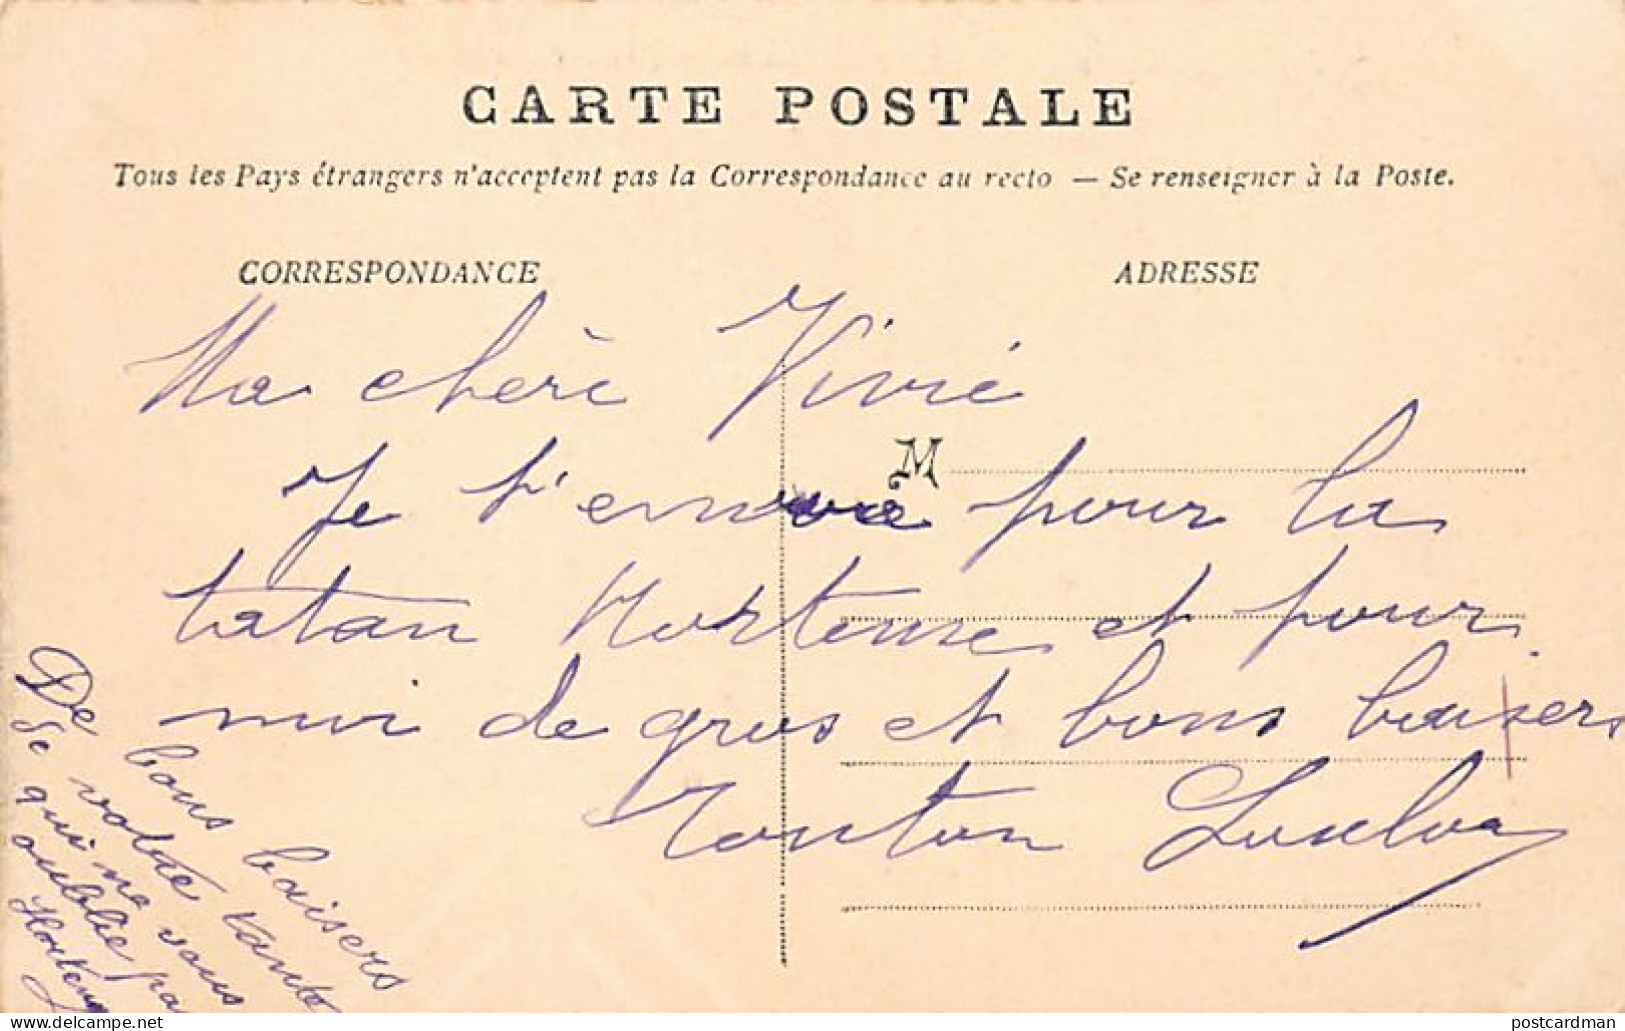 CARTE POSTALE
Tous les Pays étrangers n'acceptent pas la Correspondance au recto — Se renseigner à la Poste.
CORRESPONDANCE
ADRESSE
Ma chère Vivie
M
Je t'envoie pour la
tatan Hortense et pour
moi de gros et bons baisers
Tonton
De bons baisers
de votre tante
qui ne vous
oublie pas
Hortense
postcardman